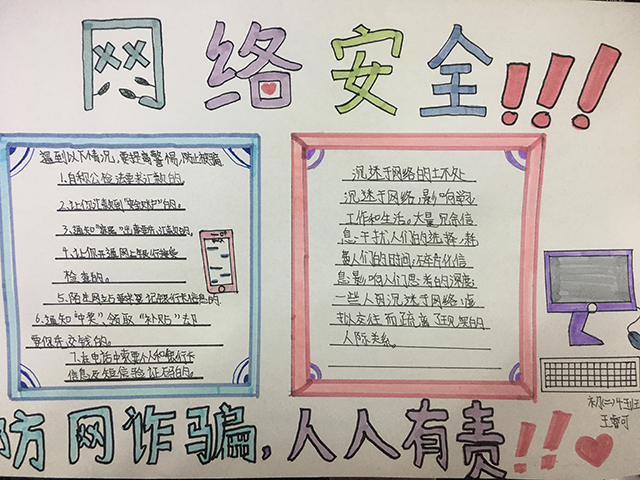 网络安全!!!
遇到以下情况,要提高警惕,防止被骗
1.自称公检法要求汇款的
2.让你汇款到"安全账户"的。
3.通知"家属"出事要先汇款的
4.让你开通网上银行接受
检查的。
5.陌生网站要登记银行卡信息的
6.通知"中奖"、领取"补贴"却
要你先交钱的。
7.在电话中索要个人和银行卡
信息及短信验证码的。
沉迷于网络的坏处
沉迷于网络,影响
工作和生活。大量冗余信
息干扰人们的选择,耗
费人们的时间,碎片化信
息影响人们思考的深度
一些人因沉迷于网络虚
拟交往而疏离了现实的
人际关系。
初(二)班
王可
防网诈骗,人人有责!!